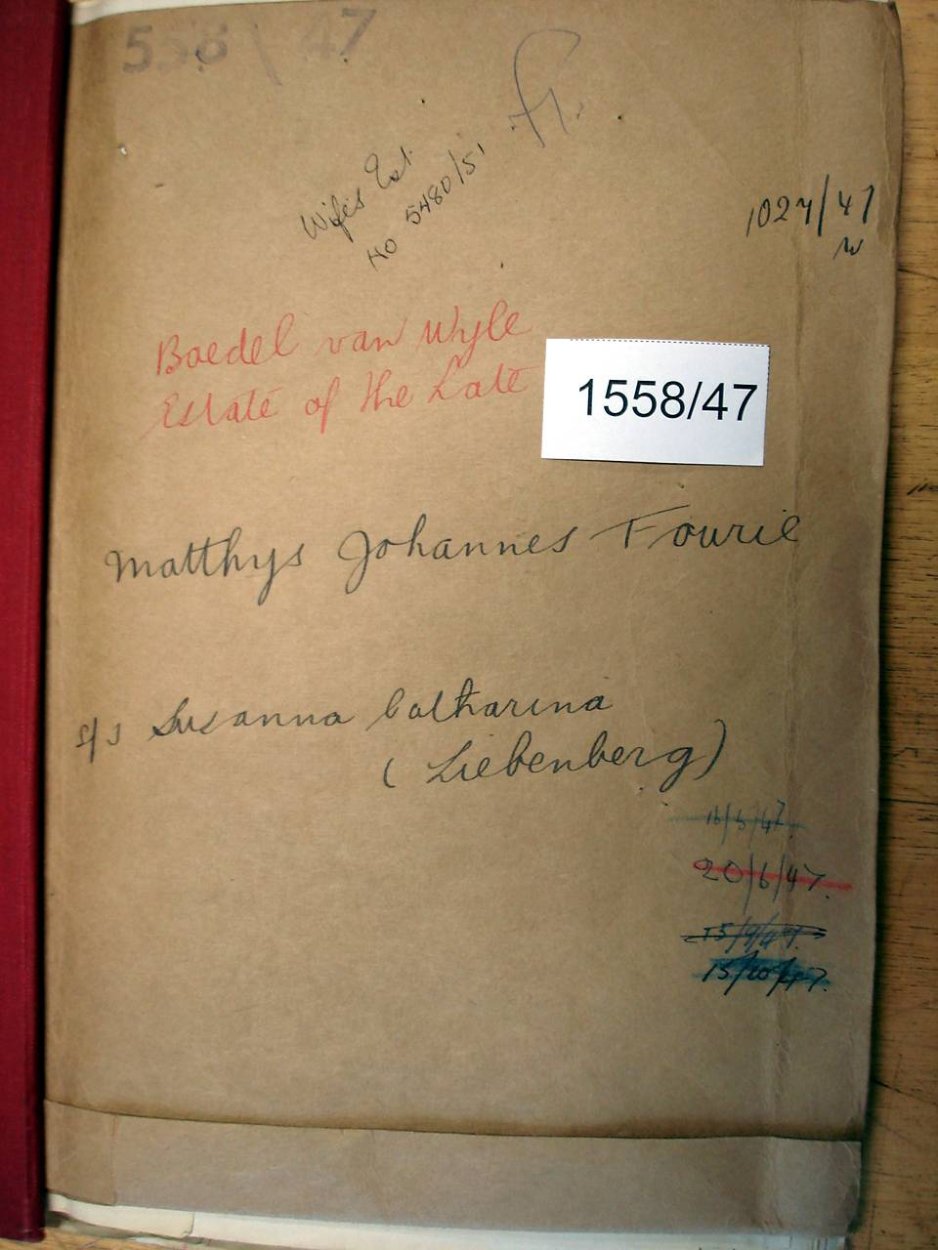 558\47
Wife's Est.
No 5480/51
1027/47
Boedel van Wyle
Estate of the Late
1558/47
Matthys Johannes Fourie
s/s Susanna Catharina
(Liebenberg)
16/5/47.
20/6/47.
15/9/47.
15/10/47.